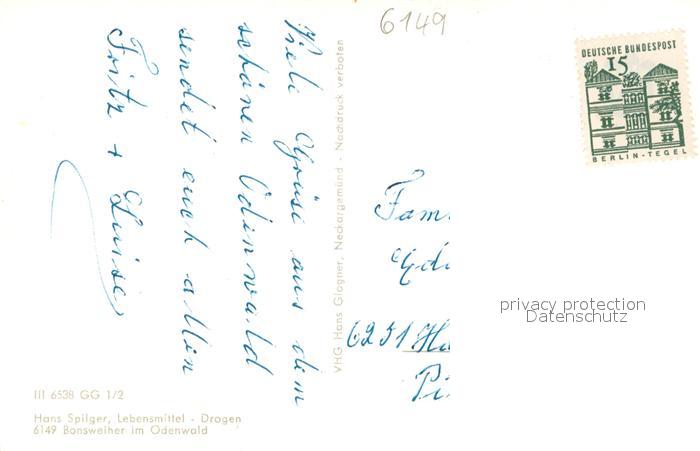 6149
DEUTSCHE BUNDESPOST
15
BERLIN-TEGEL
Viele Grüsse aus dem
schönen Odinwald
sendet euch allen
Fritz + Luise
VHG Hans Glogner, Neckargemünd - Nachdruck verboten
Fam.
6251
privacy protection
Datenschutz
III 6538 GG 1/2
Hans Spilger, Lebensmittel - Drogen
6149 Bonsweiher im Odenwald